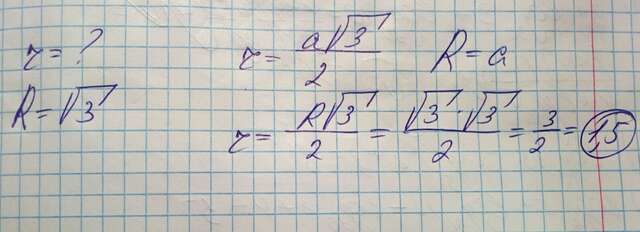 r = ?
r = a√3/2 R = a
R = √3
r = R√3/2 = √3·√3/2 = 3/2 = 1,5